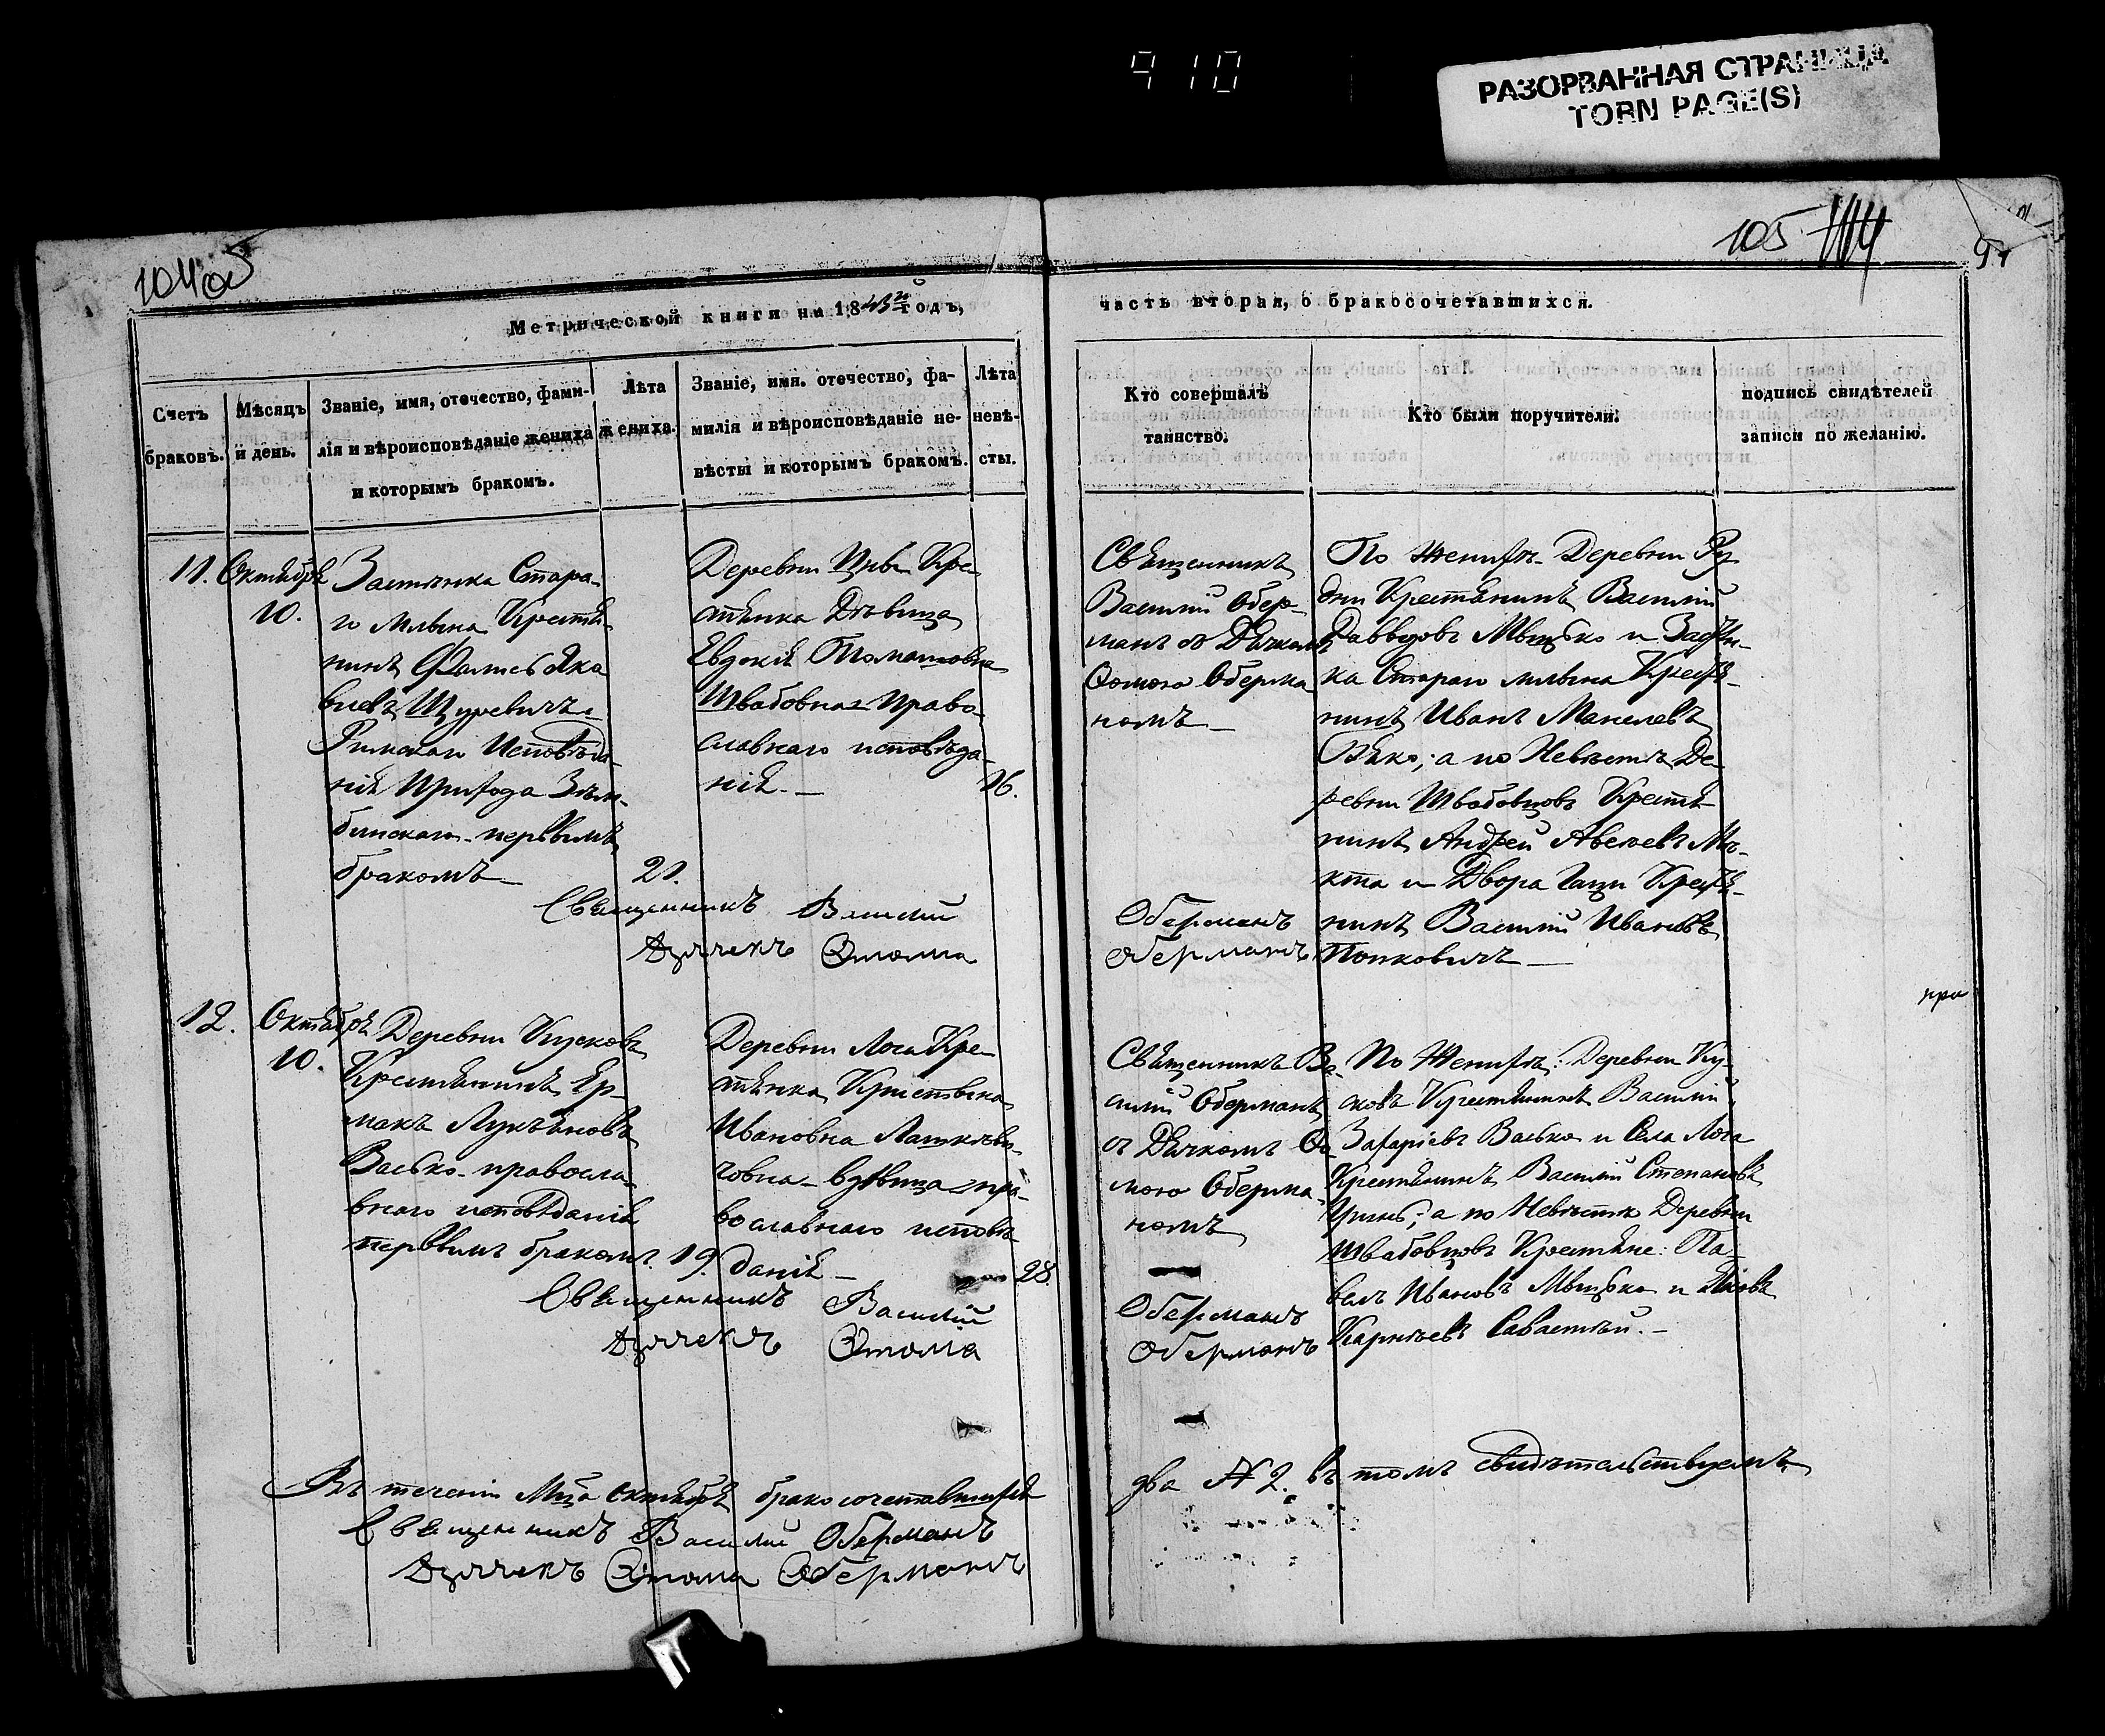 910
РАЗОРВАННАЯ СТРАНИЦА
TORN PAGE(S)
105
Метрической книги на 1843 годъ,
часть вторая, о бракосочетавшихся.
Счетъ браковъ.
Мѣсяцъ и день.
Званіе, имя, отечество, фами-
лія и вѣроисповѣданіе жениха
и которымъ бракомъ.
Лѣта
жениха.
Званіе, имя. отечество, фа-
милія и вѣроисповѣданіе не-
вѣсты и которымъ бракомъ.
Лѣта
невѣ-
сты.
Кто совершалъ
таинство.
Кто были поручители.
подпись свидѣтелей
записи по желанію.
11.
Октября
10.
Застѣнка Стара-
го Млына Крестья
нинъ
Щуревичъ
Римскаго Исповѣда-
нія Прихода Зем-
бинскаго первымъ
бракомъ
21.
Деревни Кре-
стьянка Дѣвица
Евдокія Томашовна
Швабовна Право-
славнаго исповѣда-
нія.
16.
Священникъ
Василій Обер-
манъ съ Дьячкомъ
Ѳомою Оберма
номъ
По Женихѣ Деревни Ру
дни Крестьянинъ Василій
Давыдовъ Мышко и Застѣн-
ка Стараго млына Крестья-
нинъ Иванъ
а по Невѣстѣ Де-
ревни Швабовцовъ Крестья
нинъ Андрей
и Двора Гащи Крестья-
нинъ Василій Ивановъ
Попковичъ
Священникъ Василій Оберманъ
Дьячекъ Ѳома Оберманъ
12.
Октября
10.
Деревни Кусковъ
Крестьянинъ Ер-
макъ Лукьяновъ
Васько православ
внаго исповѣданія
первымъ бракомъ.
19.
Деревни Лоса Кре-
стьянка
Ивановна
вдовица пра-
вославнаго исповѣ-
данія
28.
Священникъ Ва-
силій Оберманъ
съ Дьячкомъ Ѳо-
мою Оберма-
номъ
По Женихѣ: Деревни Ку-
сковъ Крестьянинъ Василій
Захаріевъ Васько и Села Лоса
Крестьянинъ Василій Степановъ
а по Невѣстѣ Деревни
Швабовцовъ Крестьяне: Па-
велъ Ивановъ Мышко и Яковъ
Савастѣй.
Священникъ Василій Оберманъ
Дьячекъ Ѳома Оберманъ
Въ теченіи Мца Октября бракосочетавшихся два № 2. въ томъ свидѣтельствуемъ
Священникъ Василій Оберманъ
Дьячекъ Ѳома Оберманъ